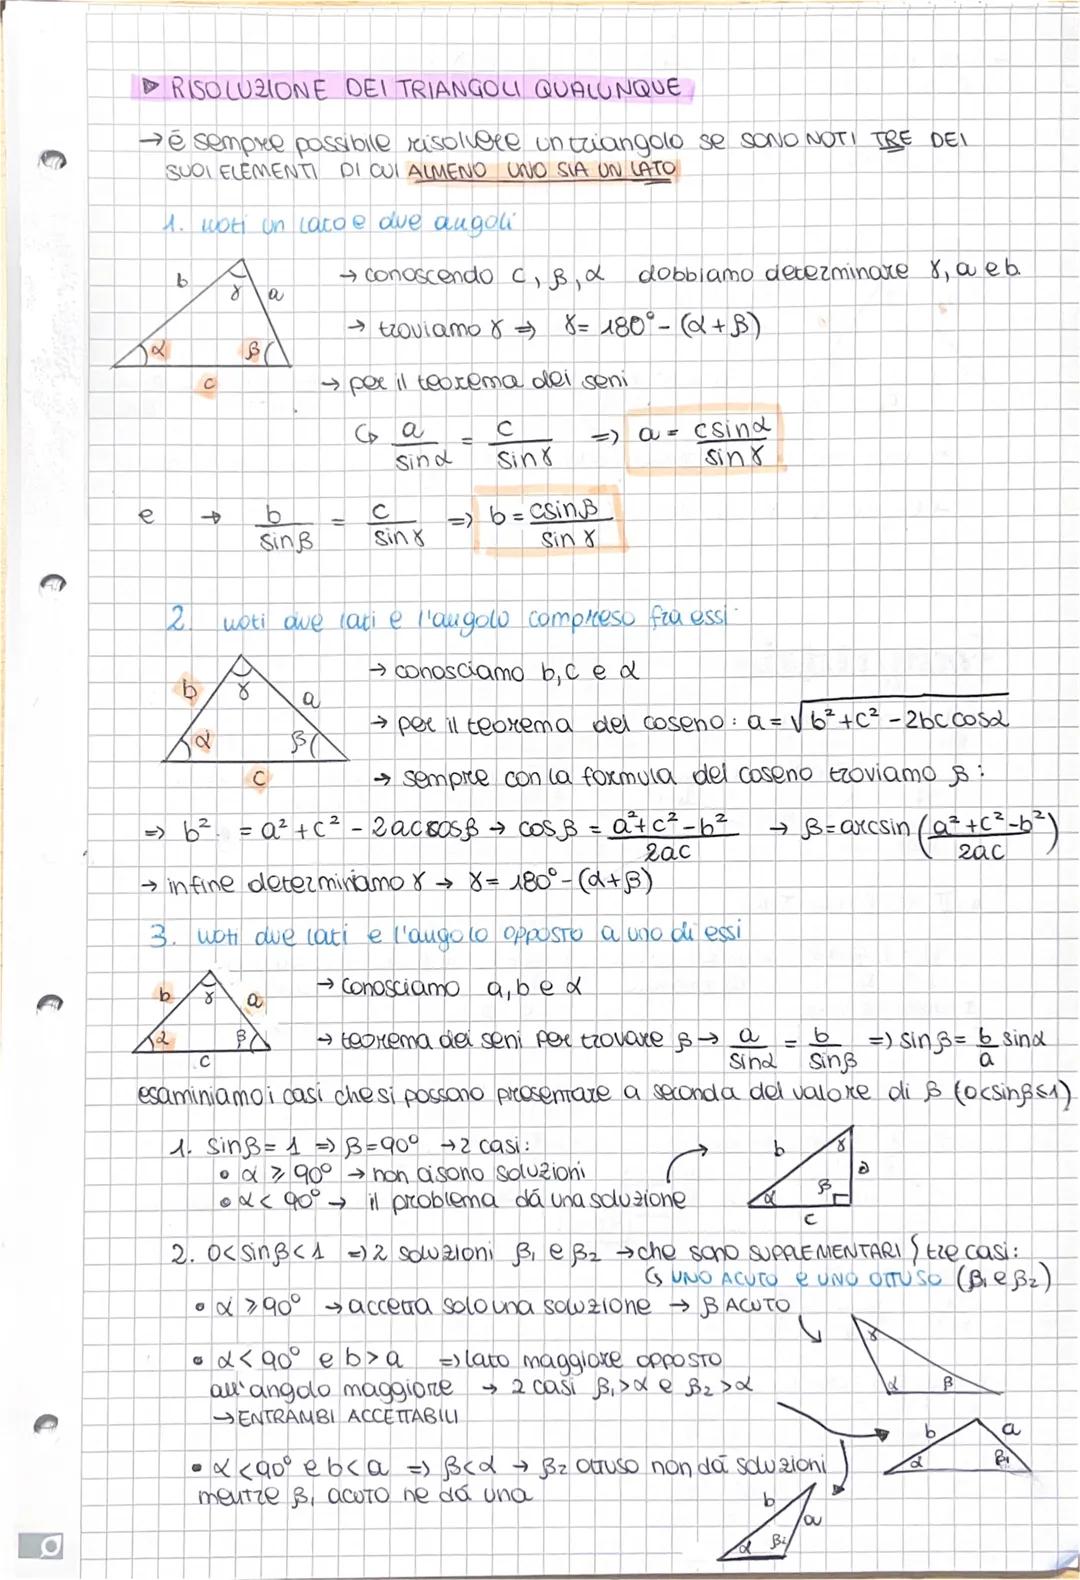 ▷ RISOLUZIONE DEI TRIANGOLI QUALUNQUE
→ é sempre possibile risolvere un triangolo se SONO NOTI TRE DEI
SUOI ELEMENTI DI CUI ALMENO UNO SIA UN LATO
1. noti un lato e due angoli
→ conoscendo c, β, α dobbiamo determinare γ, a e b
b γ a
α β
c
→ troviamo γ ⇒ γ = 180° - (α + β)
→ per il teorema dei seni
↪ a/sinα = c/sinγ => a = csinα/sinγ
e → b/sinβ = c/sinγ => b = csinβ/sinγ
2. noti due lati e l'angolo compreso fra essi
→ conosciamo b, c e α
b γ a
α β
c
→ per il teorema del coseno: a = √b² + c² - 2bc cosα
→ sempre con la formula del coseno troviamo β:
=> b² = a² + c² - 2accosβ → cosβ = a² + c² - b²/2ac → β = arcsin (a² + c² - b²/2ac)
→ infine determiniamo γ → γ = 180° - (α + β)
3. noti due lati e l'angolo opposto a uno di essi
→ conosciamo a, b e α
b γ a
α β
c
→ teorema dei seni per trovare β → a/sinα = b/sinβ => sinβ = b/a sinα
esaminiamo i casi che si possono presentare a seconda del valore di β (0<sinβ≤1)
1. sinβ = 1 => β = 90° → 2 casi:
• α ⩾ 90° → non ci sono soluzioni
• α < 90° → il problema dá una soluzione
b γ a
α β
c
2. 0 < sinβ < 1 => 2 soluzioni β₁ e β₂ → che sono SUPPLEMENTARI tre casi:
↪ UNO ACUTO e UNO OTTUSO (β₁ e β₂)
• α ⩾ 90° → accetta solo una soluzione → β ACUTO
γ
α β
• α < 90° e b > a => lato maggiore opposto
all'angolo maggiore → 2 casi β₁ > α e β₂ > α
→ ENTRAMBI ACCETTABILI
b a
α β₁
• α < 90° e b < a => β < α → β₂ ottuso non dá soluzioni
mentre β₁ acuto ne dá una
b a
α β₂